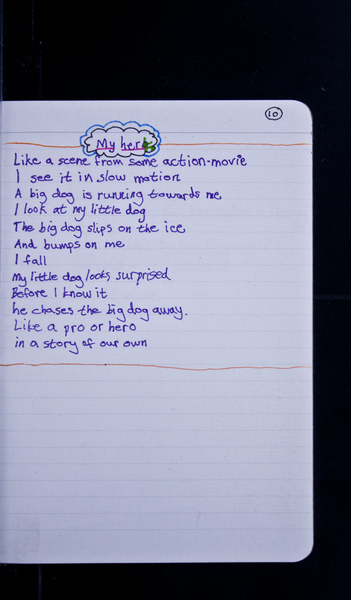 10
My hero
Like a scene from some action-movie
I see it in slow motion
A big dog is running towards me
I look at my little dog
The big dog slips on the ice
And bumps on me
I fall
My little dog looks surprised
Before I know it
he chases the big dog away.
Like a pro or hero
in a story of our own